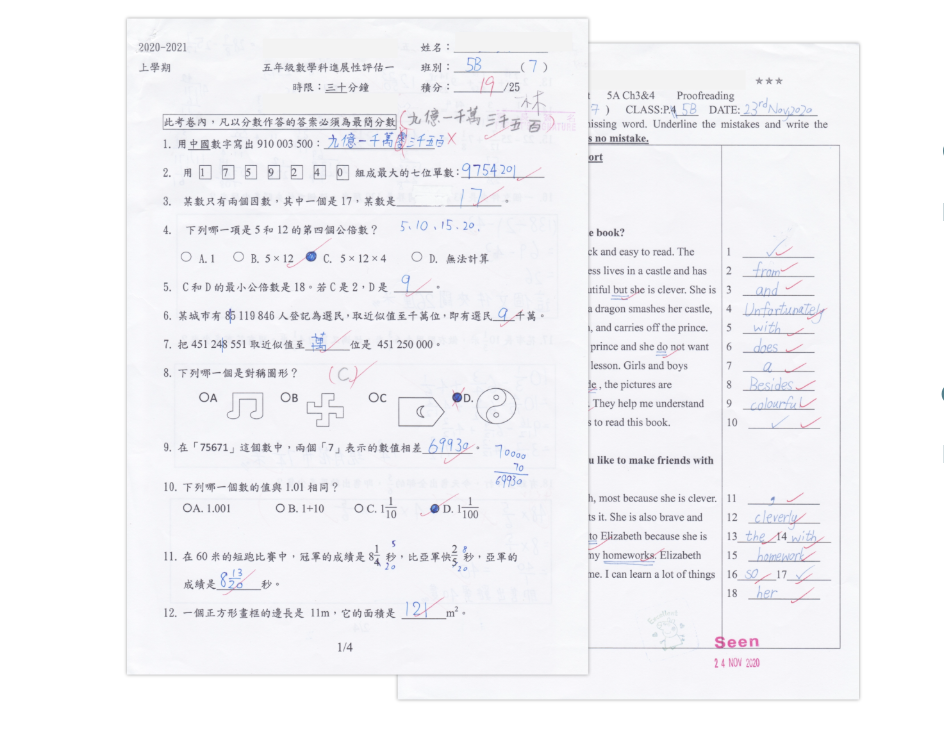 2020-2021
姓名：
上學期
五年級數學科進展性評估一
班別： 5B (7)
時限：三十分鐘
積分： 19 /25
林
此考卷內，凡以分數作答的答案必須為最簡分數
九億一千萬 三千五百
1. 用中國數字寫出 910 003 500： 九億一千萬零三千五百
2. 用 1 7 5 9 2 4 0 組成最大的七位單數： 9754201
3. 某數只有兩個因數，其中一個是 17，某數是 17 。
4. 下列哪一項是 5 和 12 的第四個公倍數？ 5、10、15、20、
A. 1 B. 5 × 12 C. 5 × 12 × 4 D. 無法計算
5. C 和 D 的最小公倍數是 18。若 C 是 2，D 是 9 。
6. 某城市有 85 119 846 人登記為選民，取近似值至千萬位，即有選民 9 千萬。
7. 把 451 248 551 取近似值至 萬 位是 451 250 000。
8. 下列哪一個是對稱圖形？ (C)
A B C D.
9. 在「75671」這個數中，兩個「7」表示的數值相差 69930 。
70000
70
69930
10. 下列哪一個數的值與 1.01 相同？
A. 1.001 B. 1+10 C. 1 1/10 D. 1 1/100
11. 在 60 米的短跑比賽中，冠軍的成績是 8 1/4 秒，比亞軍快 2/5 秒，亞軍的
5 20 8 20
成績是 8 13/20 秒。
12. 一個正方形畫框的邊長是 11m，它的面積是 121 m²。
1/4
***
5A Ch3&4 Proofreading
7 ) CLASS:P.4 5B DATE: 23rd Nov, 2020
issing word. Underline the mistakes and write the
s no mistake.
ort
e book?
ck and easy to read. The 1
ess lives in a castle and has 2 from
utiful but she is clever. She is 3 and
a dragon smashes her castle, 4 Unfortunately
, and carries off the prince. 5 with
prince and she do not want 6 does
lesson. Girls and boys 7 a
, the pictures are 8 Besides
They help me understand 9 colourful
s to read this book. 10
u like to make friends with
h, most because she is clever. 11 ,
ts it. She is also brave and 12 cleverly
to Elizabeth because she is 13 the 14 with
ny homeworks. Elizabeth 15 homework
me. I can learn a lot of things 16 so 17
18 her
Seen
24 NOV 2020